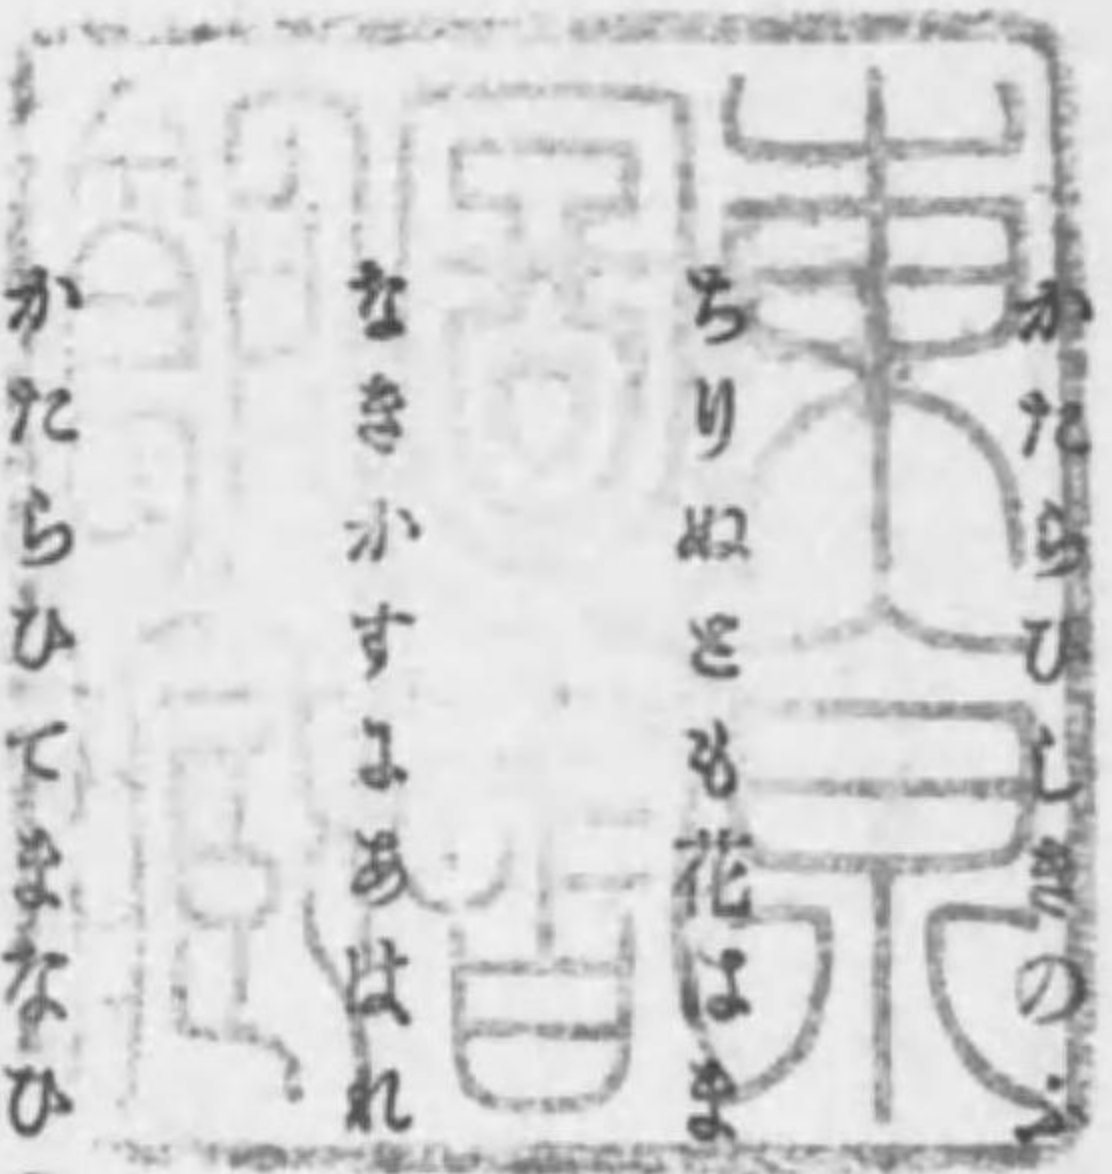 かたらひしきのふ
ちりぬとも花はま
なきかすにあはれ
かたらひてまなひ
東京
圖書